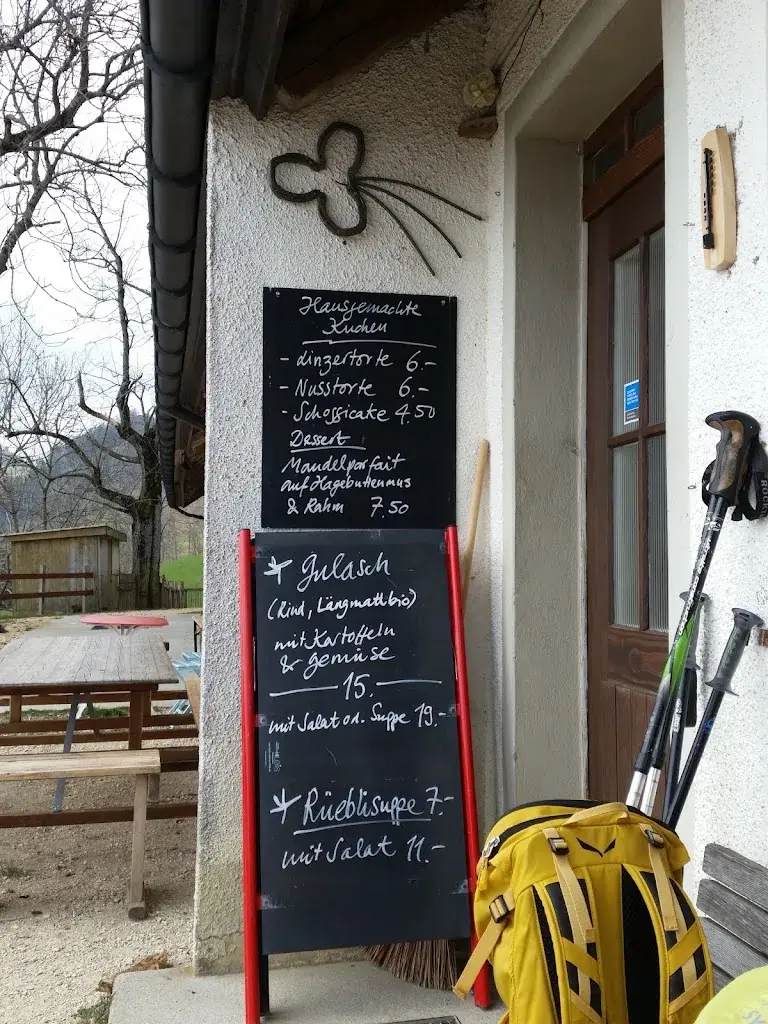 Hausgemachte
Kuchen
- Linzertorte 6.-
- Nusstorte 6.-
- Schoggicake 4.50
Dessert
Mandelparfait
auf Hagebuttenmus
& Rahm 7.50
* Gulasch
(Rind, Längmatt bio)
mit Kartoffeln
& Gemüse
15.
mit Salat od. Suppe 19.-
* Rüeblisuppe 7.-
mit Salat 11.-